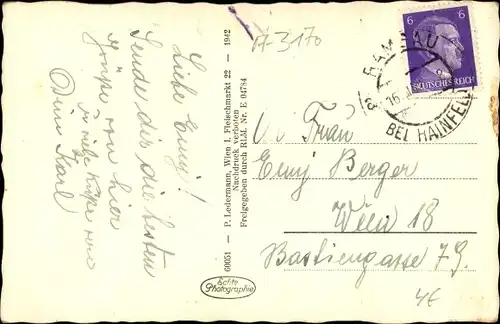 A-3170
Liebe Emy!
Sende dir die besten
Grüße von hier
Viele Küsse von
Dein Karl
60051 – P. Ledermann, Wien I, Fleischmarkt 22 – 1942
Nachdruck verboten
Freigegeben durch RLM. Nr. E 04784
Echte
Photographie
6 6
DEUTSCHES REICH
RAMSAU
BEI HAINFELD
16
Frau
Emy Berger
Wien 18
Bastiengasse 79.
4E